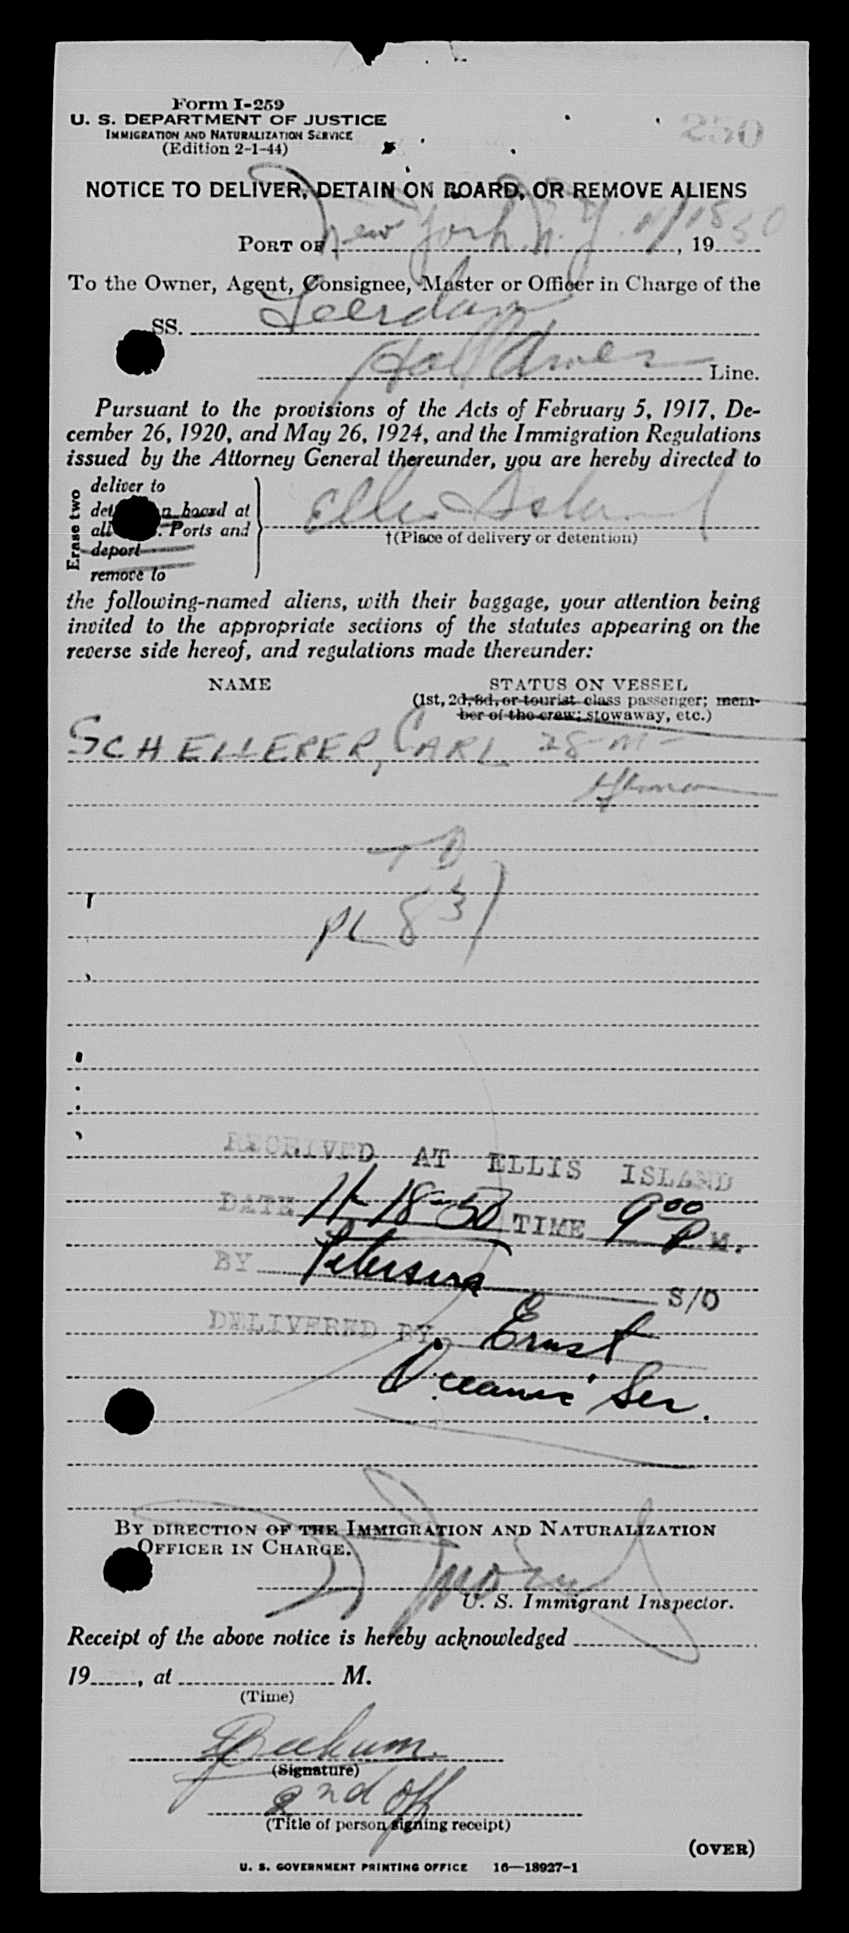 Form I-259
U. S. DEPARTMENT OF JUSTICE
IMMIGRATION AND NATURALIZATION SERVICE
(Edition 2-1-44)
250
NOTICE TO DELIVER, DETAIN ON BOARD, OR REMOVE ALIENS
PORT OF New York, N.Y. 11/18, 1950
To the Owner, Agent, Consignee, Master or Officer in Charge of the
SS. Leerdam
Holl Amer Line.
Pursuant to the provisions of the Acts of February 5, 1917, De-
cember 26, 1920, and May 26, 1924, and the Immigration Regulations
issued by the Attorney General thereunder, you are hereby directed to
Erase two
deliver to
n board at
all . Ports and
deport
remove to
Ellis Island
†(Place of delivery or detention)
the following-named aliens, with their baggage, your attention being
invited to the appropriate sections of the statutes appearing on the
reverse side hereof, and regulations made thereunder:
NAME STATUS ON VESSEL
(1st, 2d, 3d, or tourist class passenger; mem-
ber of the crew; stowaway, etc.)
SCHELLEPER, CARL 28-M-
TD
PL 831
RECEIVED AT ELLIS ISLAND
DATE 11-18-50 TIME 9 00 P M.
BY Petersen S/O
DELIVERED BY Ernst
Oceanic Ser.
BY DIRECTION OF THE IMMIGRATION AND NATURALIZATION
OFFICER IN CHARGE.
U. S. Immigrant Inspector.
Receipt of the above notice is hereby acknowledged
19, at M.
(Time)
(Signature)
2nd off
(Title of person signing receipt)
(OVER)
U. S. GOVERNMENT PRINTING OFFICE 16—18927-1